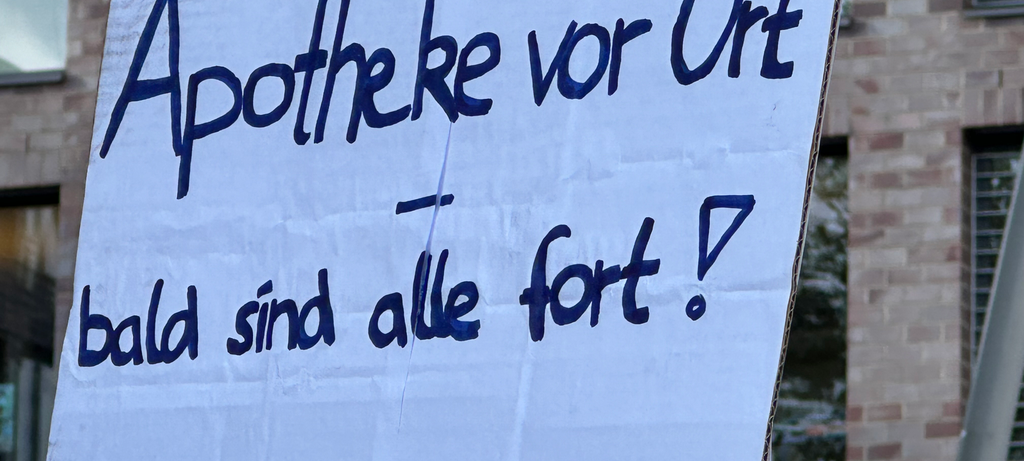 Apotheke vor Ort
–
bald sind alle fort!